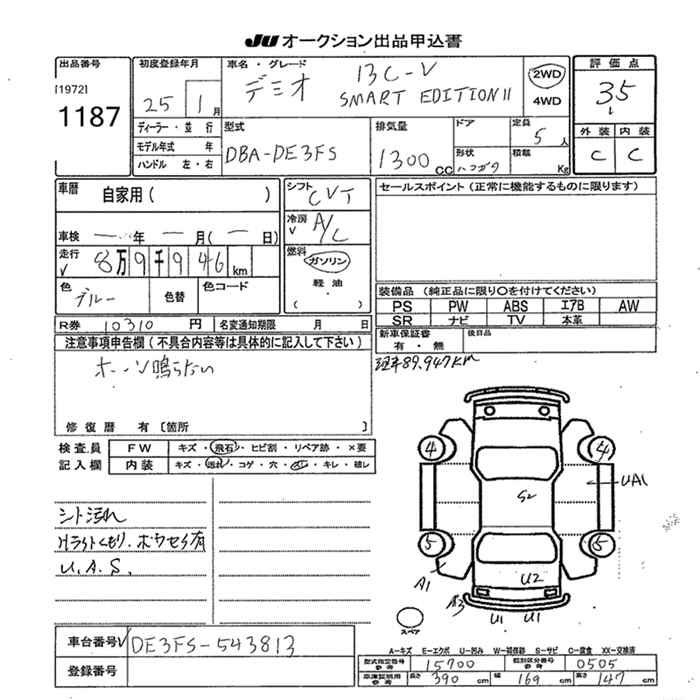 JU オークション出品申込書
出品番号
[1972]
1187
初度登録年月
25 1 月
ディーラー・並行
モデル年式 年
ハンドル 左・右
車名・グレード
デミオ 13C-V
SMART EDITION II
2WD
4WD
評価点
3.5
外装 内装
C C
型式
DBA-DE3FS
排気量
1300 CC
ドア
形状
ハッチバック
定員
5 人
積載 Kg
車歴
自家用( )
車検 ― 年 ― 月(― 日)
走行
8万9千946 km
色
ブルー
色替
色コード
シフト
CVT
冷房
A/C
燃料
ガソリン
軽油
( )
セールスポイント (正常に機能するものに限ります)
装備品 (純正品に限り○を付けてください)
PS PW ABS エアB AW
SR ナビ TV 本革
R券 10310 円 名変通知期限 月 日
新車保証書
有・無
後日品
注意事項申告欄 (不具合内容等は具体的に記入して下さい)
ホーン鳴らない
89,947km
修復歴 有 [箇所
検査員
記入欄
FW キズ・飛石・ヒビ割・リペア跡・×要
内装 キズ・汚れ・コゲ・穴・スレ・キレ・破レ
シート汚れ
Hライトくもり、ホワセラ有
U.A.S.
4 4
5 5
S2
UA1
U2
A1
A3
U1 U1
スペア
車台番号 DE3FS-543813
登録番号
A-キズ E-エクボ U-凹み W-補修跡 S-サビ C-腐食 XX-交換済
型式指定番号 参考 15700
類別区分番号 参考 0505
車庫証明用 参考 長さ 390 cm 幅 169 cm 高さ 147 cm